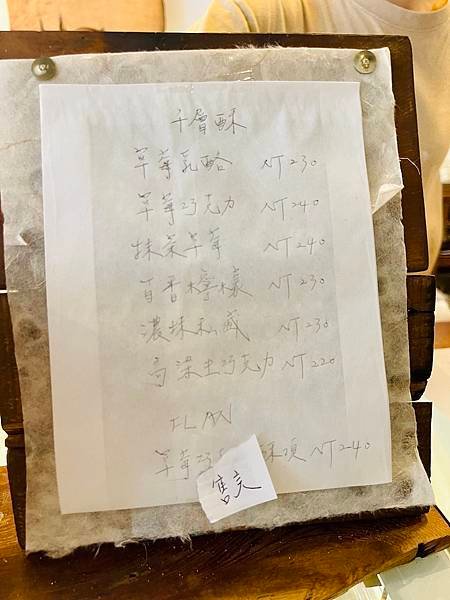 千層酥
草莓乳酪 NT230
草莓巧克力 NT240
抹茶草莓 NT240
百香檸檬 NT230
濃抹私藏 NT230
高粱生巧克力 NT220
FLAN
草莓巧 NT240
售完